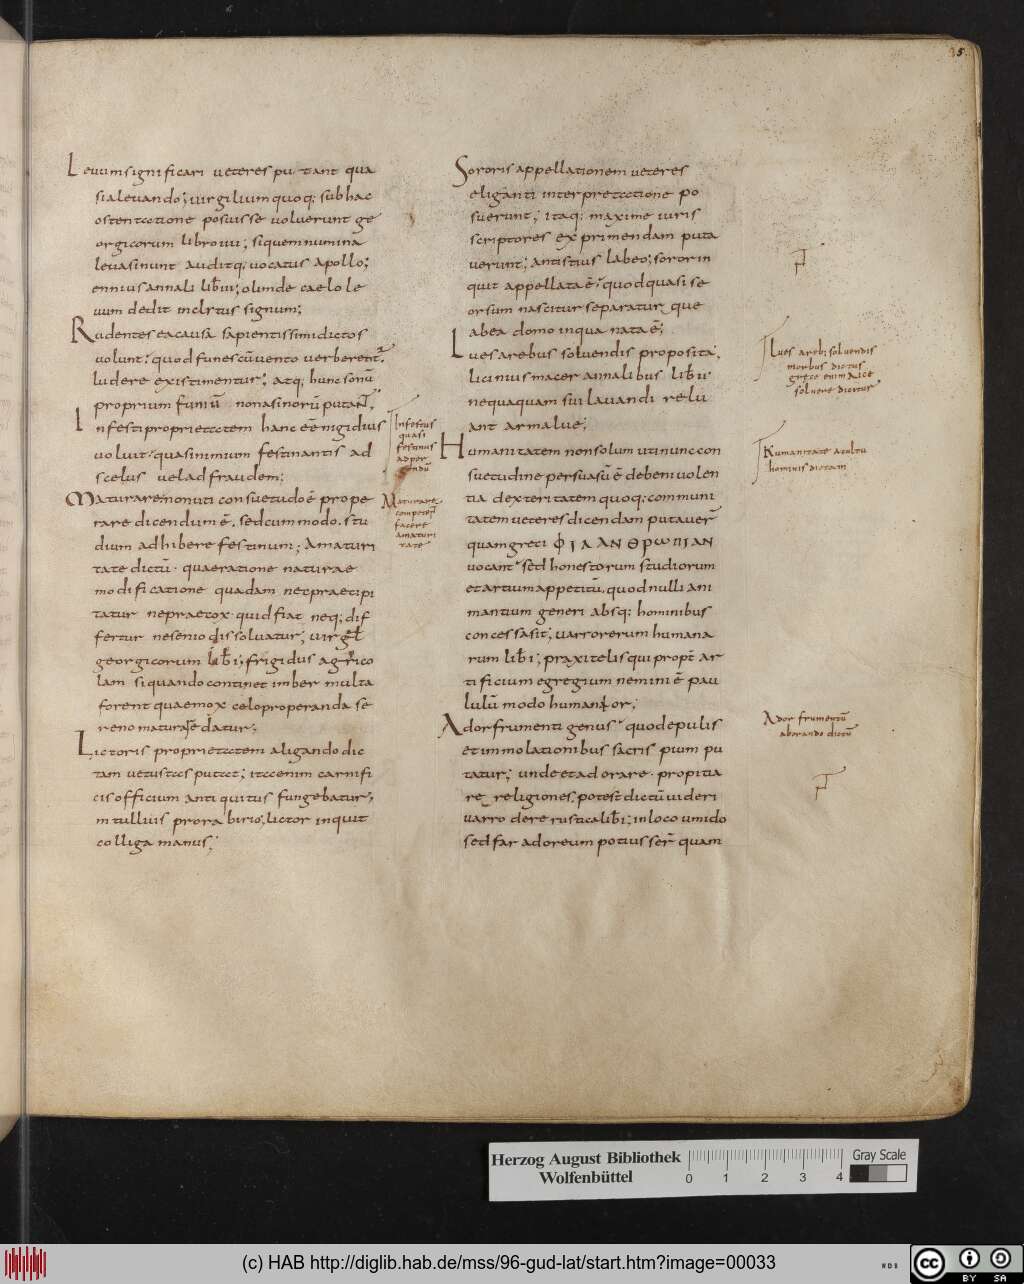 5
Leuum significari ueteres putant qua
sialeuando; uirgilium quoq; sub hac
ostentatione posuisse uoluerunt ge
orgicorum libro iiii; siquem numina
leuasinunt auditq; uocatus apollo;
ennius annali lib ui; olim de caelo le
uum dedit inclitus signum;
Rudentes ea causa sapientissimi dictos
uolunt; quod funes cū uento uerberent᷑
ludere existimentur; atq; hunc sonū
proprium funiū non asinorū putant᷑;
Infesti proprietatem hanc eē nigidius
uoluit; quasi nimium festinantis ad
scelus uel ad fraudem;
Maturare non uti consuetudo ē prope
rare dicendum ē, sed cum modo, stu
dium adhibere festinum; Amaturi
tate dictū quae ratione naturae
modificatione quadam nec praecipi
tatur ne praecox quid fiat neq; dif
fertur ne senio dissoluatur; uirgil
georgicorum lib i; frigidus agrico
lam siquando continet imber multa
forent quae mox celo properanda se
reno maturare datur;
Lictoris proprietatem aligando dic
tam uetustas putat; itaenim carnifi
cis officium antiquitus fungebatur;
m tullius pro rabirio; lictor inquit
colliga manus;
Infestus
quasi
festinus
ad per
dendū
Maturare
competent᷑
facere
amaturi
tate
Sororis appellationem ueteres
eliganti interpretatione po
suerunt; itaq; maxime iuris
scriptores exprimendam puta
uerunt; antistius labeo; soror in
quit appellata ē; quod quasi se
orsum nascitur separatur que
abea domo inqua nata ē;
Lues arebus soluendis proposita;
licinius macer annalibus lib ii
nequaquam sui lauandi relu
ant arma lue;
Humanitatem non solum uti nunc con
suetudine persuasū ē de beniuolen
tia dexteritatem quoq; communi
tatem ueteres dicendam putauer᷑
quam greci ΦΙΛΑΝΘΡωΠΙΑΝ
uocant sed honestorum studiorum
et artium appetitū, quod nulli ani
mantium generi absq; hominibus
concessa sit; uarro rerum humana
rum lib i; praxitelis qui propt ar
tificium egregium nemini ē pau
lulū modo humanior;
Ador frumenti genus quod epulis
et immolationibus sacris pium pu
tatur; unde et adorare propitia
re religiones, potest dictū uideri
uarro de re rustica lib i; in loco umido
sed far adoreum potius ser᷑ quam
Lues areb; soluendis
morbus dictus
grece enim λΙϹΕ
soluere dicitur
Humanitate acultu
hominis dictam
Ador frumentū
aborando dictū
Herzog August Bibliothek
Wolfenbüttel
0 1 2 3 4
Gray Scale
(c) HAB http://diglib.hab.de/mss/96-gud-lat/start.htm?image=00033
WDB
cc BY SA